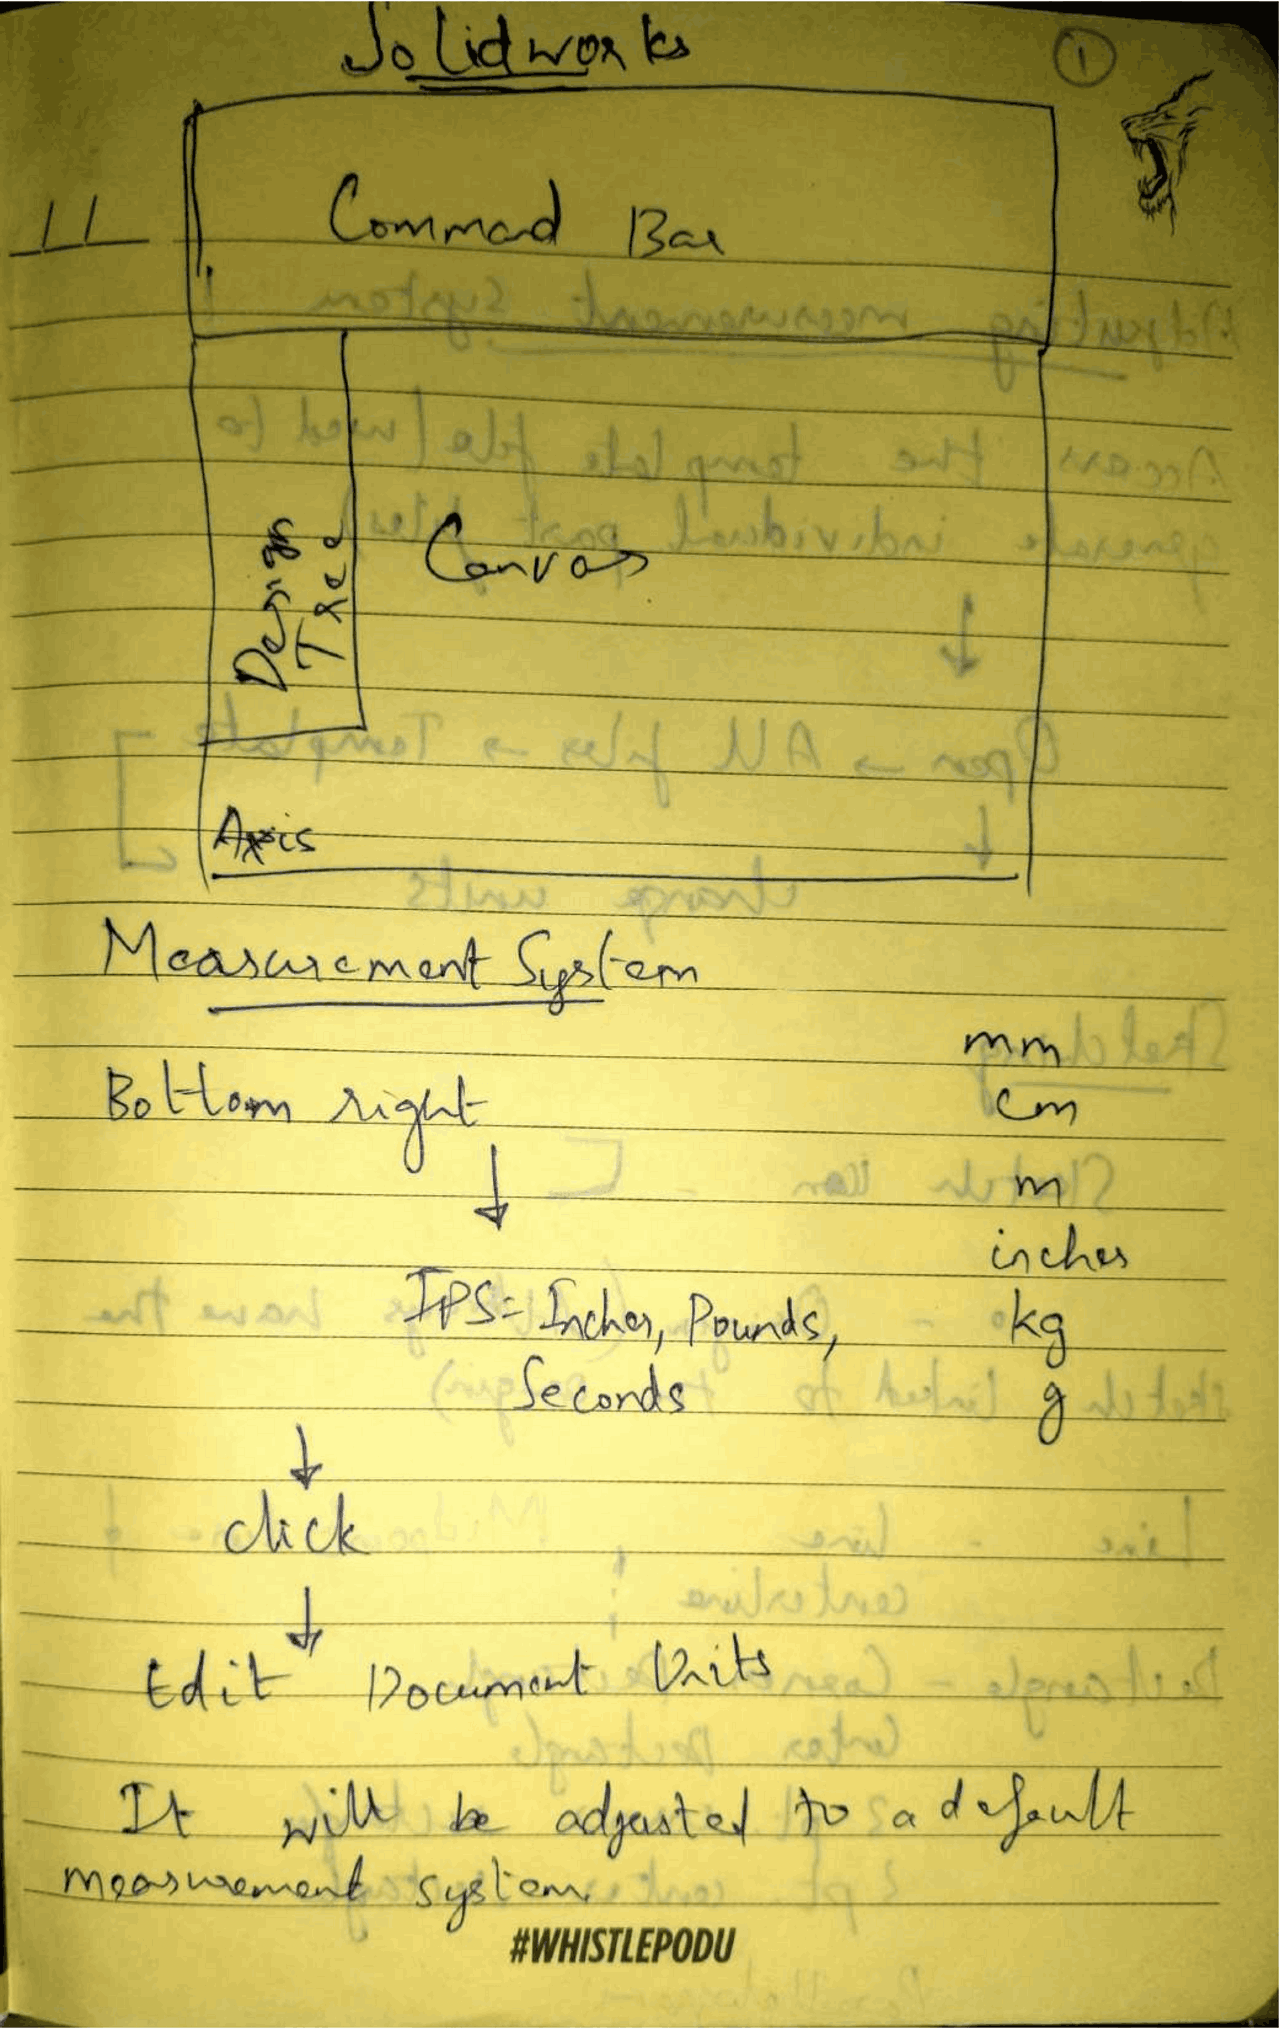 Solidworks
1
Command Bar
Design
Tree
Canvas
Axis
Measurement System
mm
Bottom right
cm
m
inches
IPS = Inches, Pounds,
kg
Seconds
g
click
Edit Document Units
It will be adjusted to a default
measurement system.
#WHISTLEPODU